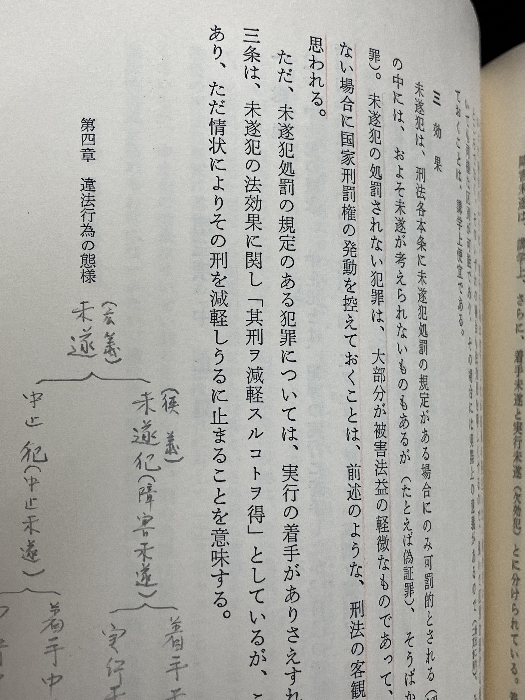 ておくことは、講学上便宜である。
三　効果
未遂犯は、刑法各本条に未遂犯処罰の規定がある場合にのみ可罰的とされる
の中には、およそ未遂が考えられないものもあるが（たとえば偽証罪）、そうばか
罪）。未遂犯の処罰されない犯罪は、大部分が被害法益の軽微なものであって、
ない場合に国家刑罰権の発動を控えておくことは、前述のような、刑法の客観
思われる。
ただ、未遂犯処罰の規定のある犯罪については、実行の着手がありさえすれ
三条は、未遂犯の法効果に関し「其刑ヲ減軽スルコトヲ得」としているが、こ
あり、ただ情状によりその刑を減軽しうるに止まることを意味する。
第四章　違法行為の態様
（広義）
未遂
（狭義）
未遂犯（障害未遂）
中止犯（中止未遂）
着手未
実行未
着手中
さらに、着手未遂と実行未遂（欠効犯）とに分けられている。